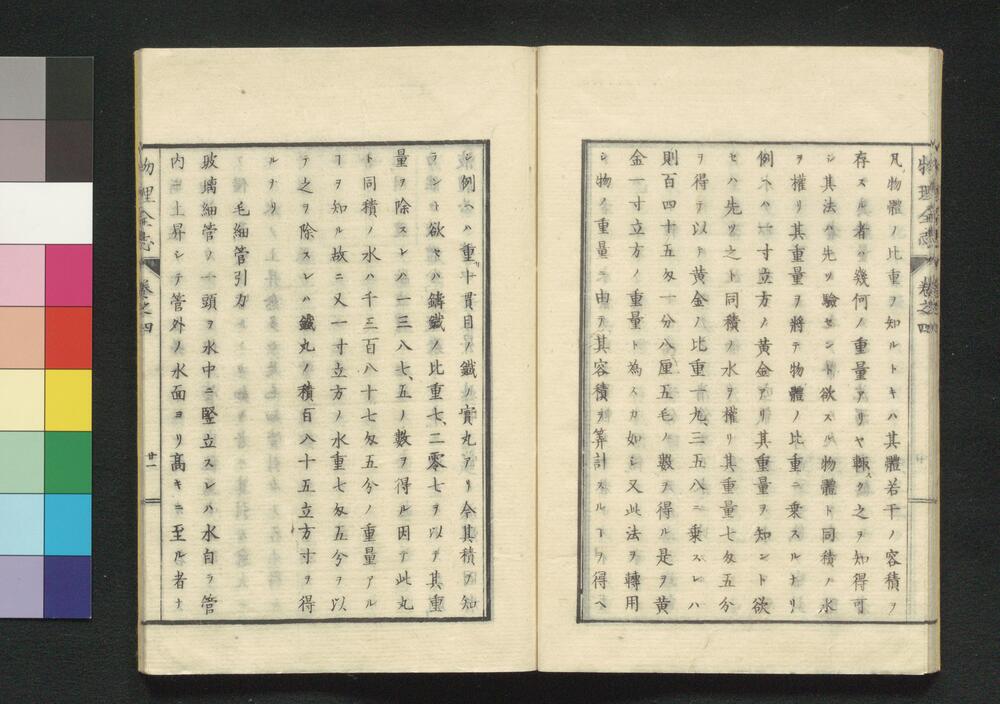 物理全志 卷之四
凡物體ノ比重ヲ知ルトキハ其體若干ノ容積ヲ
存スル者ハ幾何ノ重量アリヤ輙ク之ヲ知得可
シ其法ハ先ツ驗セント欲スル物體ト同積ノ水
ヲ權リ其重量ヲ將テ物體ノ比重ニ乘スルナリ
例ヘハ一寸立方ノ黄金アリ其重量ヲ知ント欲
セハ先ツ之ト同積ノ水ヲ權リ其重量七匁五分
ヲ得テ以テ黄金ノ比重十九、三五八ニ乘スレハ
則百四十五匁一分八厘五毛ノ數ヲ得ル是ヲ黄
金一寸立方ノ重量ト為スカ如シ又此法ヲ轉用
シ物ノ重量ニ由テ其容積ヲ算計スルヿヲ得ヘ
シ例ヘハ重十貫目ノ鐵ノ實丸アリ今其積ヲ知
ラント欲セハ鑄鐵ノ比重七、二零七ヲ以テ其重
量ヲ除スレハ一三八七、五ノ數ヲ得ル因テ此丸
ト同積ノ水ハ千三百八十七匁五分ノ重量アル
ヿヲ知ル故ニ又一寸立方ノ水重七匁五分ヲ以
テ之ヲ除スレハ鐵丸ノ積百八十五立方寸ヲ得
ルナリ
毛細管引力
玻璃細管ノ一頭ヲ水中ニ竪立スレハ水自ラ管
内ニ上昇シテ管外ノ水面ヨリ高キニ至ル者ナ
物理全志 卷之四 廿一